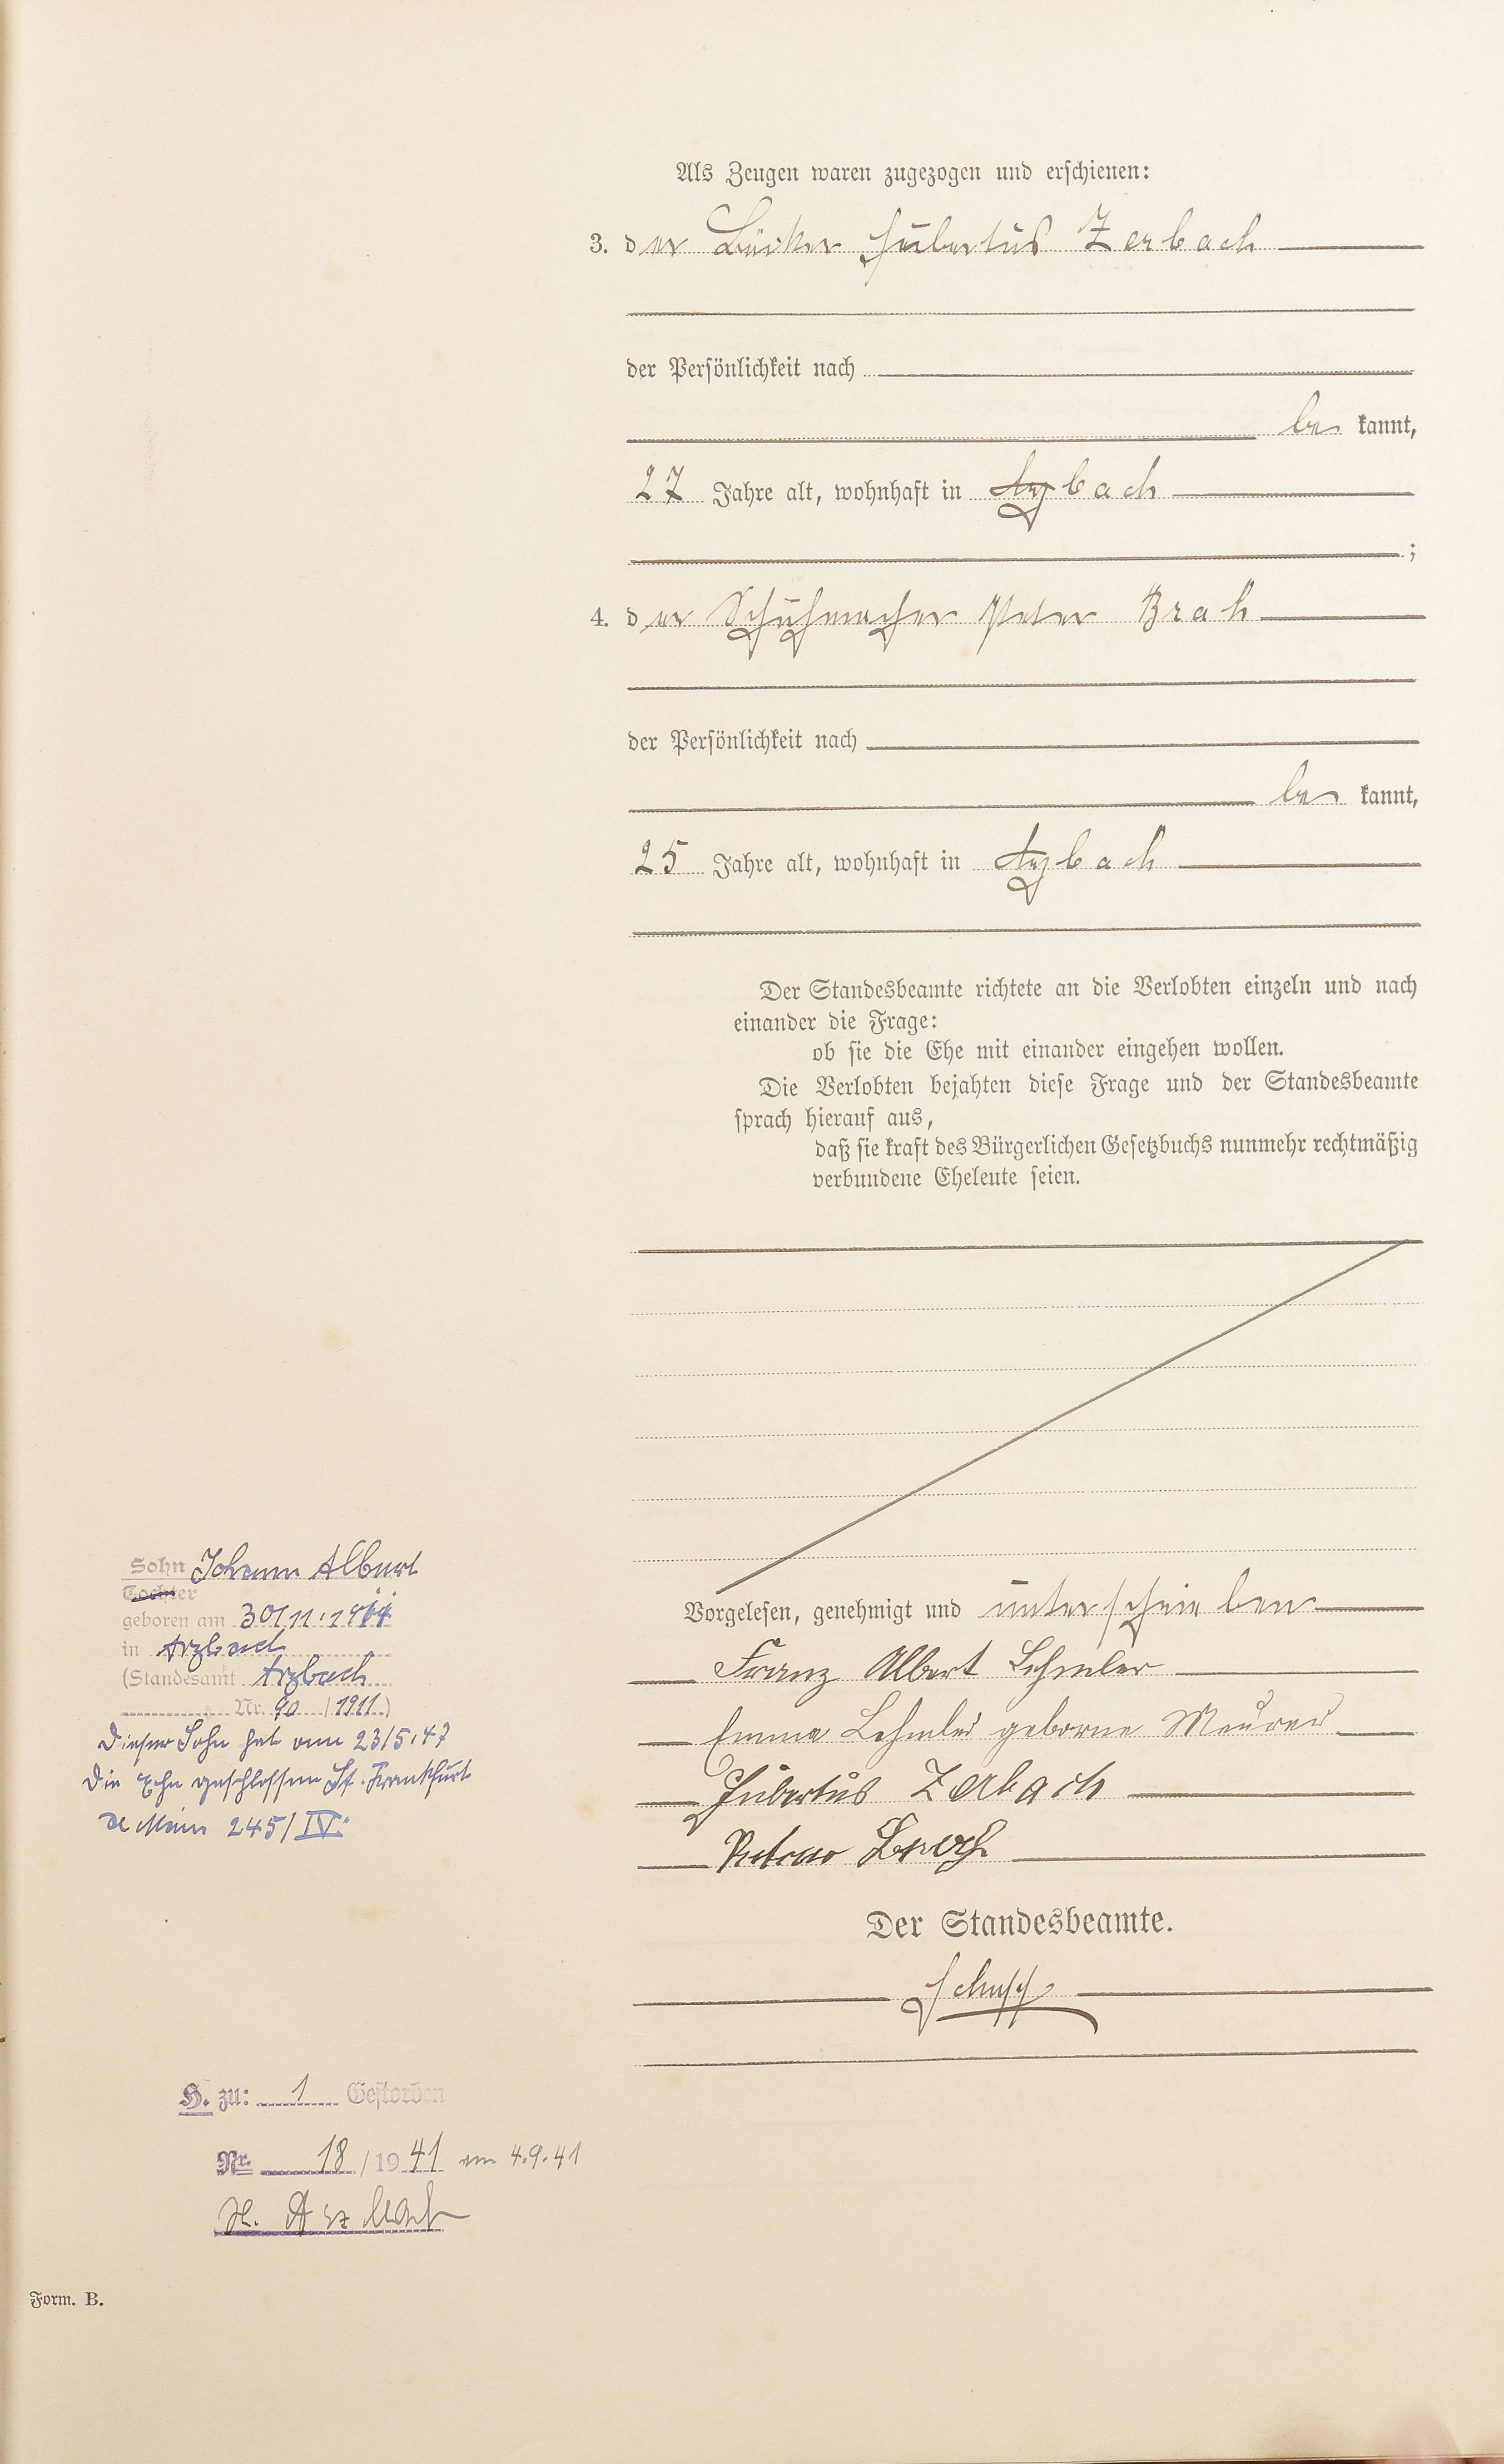 Als Zeugen waren zugezogen und erschienen:
3. der Bäcker Hubertus Zerbach
der Persönlichkeit nach
be kannt,
27 Jahre alt, wohnhaft in Arzbach
;
4. der Schuhmacher Peter Brah
der Persönlichkeit nach
be kannt,
25 Jahre alt, wohnhaft in Arzbach
Der Standesbeamte richtete an die Verlobten einzeln und nach
einander die Frage:
ob sie die Ehe mit einander eingehen wollen.
Die Verlobten bejahten diese Frage und der Standesbeamte
sprach hierauf aus,
daß sie kraft des Bürgerlichen Gesetzbuchs nunmehr rechtmäßig
verbundene Eheleute seien.
Vorgelesen, genehmigt und unterschrieben
Franz Albert Lehmler
Emma Lehmler geborne Meurer
Hubertus Zerbach
Peter Brah
Der Standesbeamte.
Sohn Johann Albert
Tochter
geboren am 30/11.1911
in Arzbach
(Standesamt Arzbach
Nr. 90 / 1911)
Dieser Sohn hat am 23/5.47
die Ehe geschlossen St. Frankfurt
a Main 245/IV.
H. zu: 1 Gestorben
Nr. 18 / 1941 am 4.9.41
St. Arzbach
Form. B.